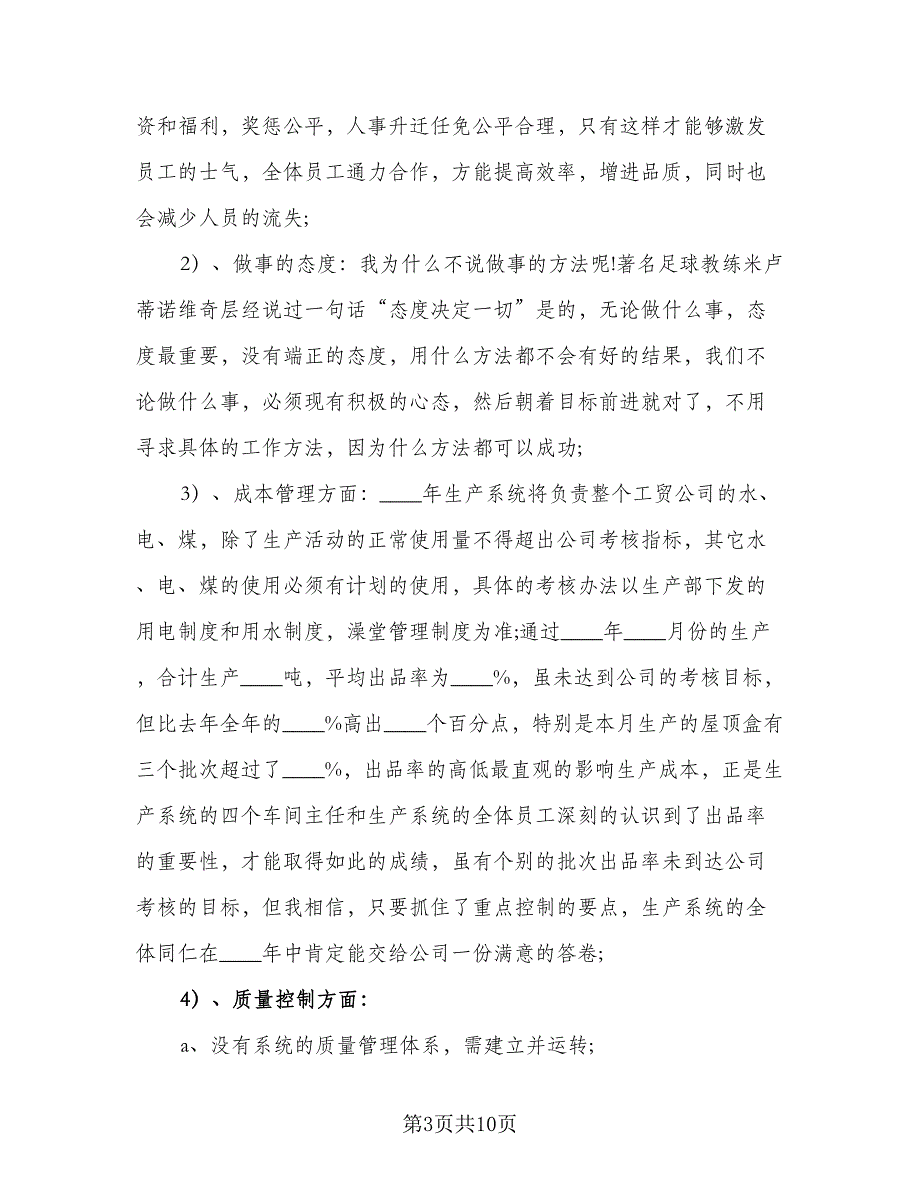 资和福利，奖惩公平，人事升迁任免公平合理，只有这样才能够激发
员工的士气，全体员工通力合作，方能提高效率，增进品质，同时也
会减少人员的流失;
2）、做事的态度：我为什么不说做事的方法呢!著名足球教练米卢
蒂诺维奇层经说过一句话“态度决定一切”是的，无论做什么事，态
度最重要，没有端正的态度，用什么方法都不会有好的结果，我们不
论做什么事，必须现有积极的心态，然后朝着目标前进就对了，不用
寻求具体的工作方法，因为什么方法都可以成功;
3）、成本管理方面：____年生产系统将负责整个工贸公司的水、
电、煤，除了生产活动的正常使用量不得超出公司考核指标，其它水
、电、煤的使用必须有计划的使用，具体的考核办法以生产部下发的
用电制度和用水制度，澡堂管理制度为准;通过____年____月份的生产
，合计生产____吨，平均出品率为____%，虽未达到公司的考核目标，
但比去年全年的____%高出____个百分点，特别是本月生产的屋顶盒有
三个批次超过了____%，出品率的高低最直观的影响生产成本，正是生
产系统的四个车间主任和生产系统的全体员工深刻的认识到了出品率
的重要性，才能取得如此的成绩，虽有个别的批次出品率未到达公司
考核的目标，但我相信，只要抓住了重点控制的要点，生产系统的全
体同仁在____年中肯定能交给公司一份满意的答卷;
4）、质量控制方面：
a、没有系统的质量管理体系，需建立并运转;
第3页共10页